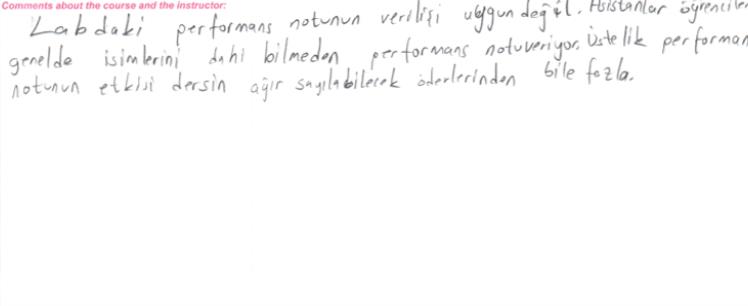 Comments about the course and the instructor:
Labdaki performans notunun verilişi uygun değil. Asistanlar öğrenciler
genelde isimlerini dahi bilmeden performans notu veriyor. Üstelik performan
notunun etkisi dersin ağır sayılabilecek ödevlerinden bile fazla.